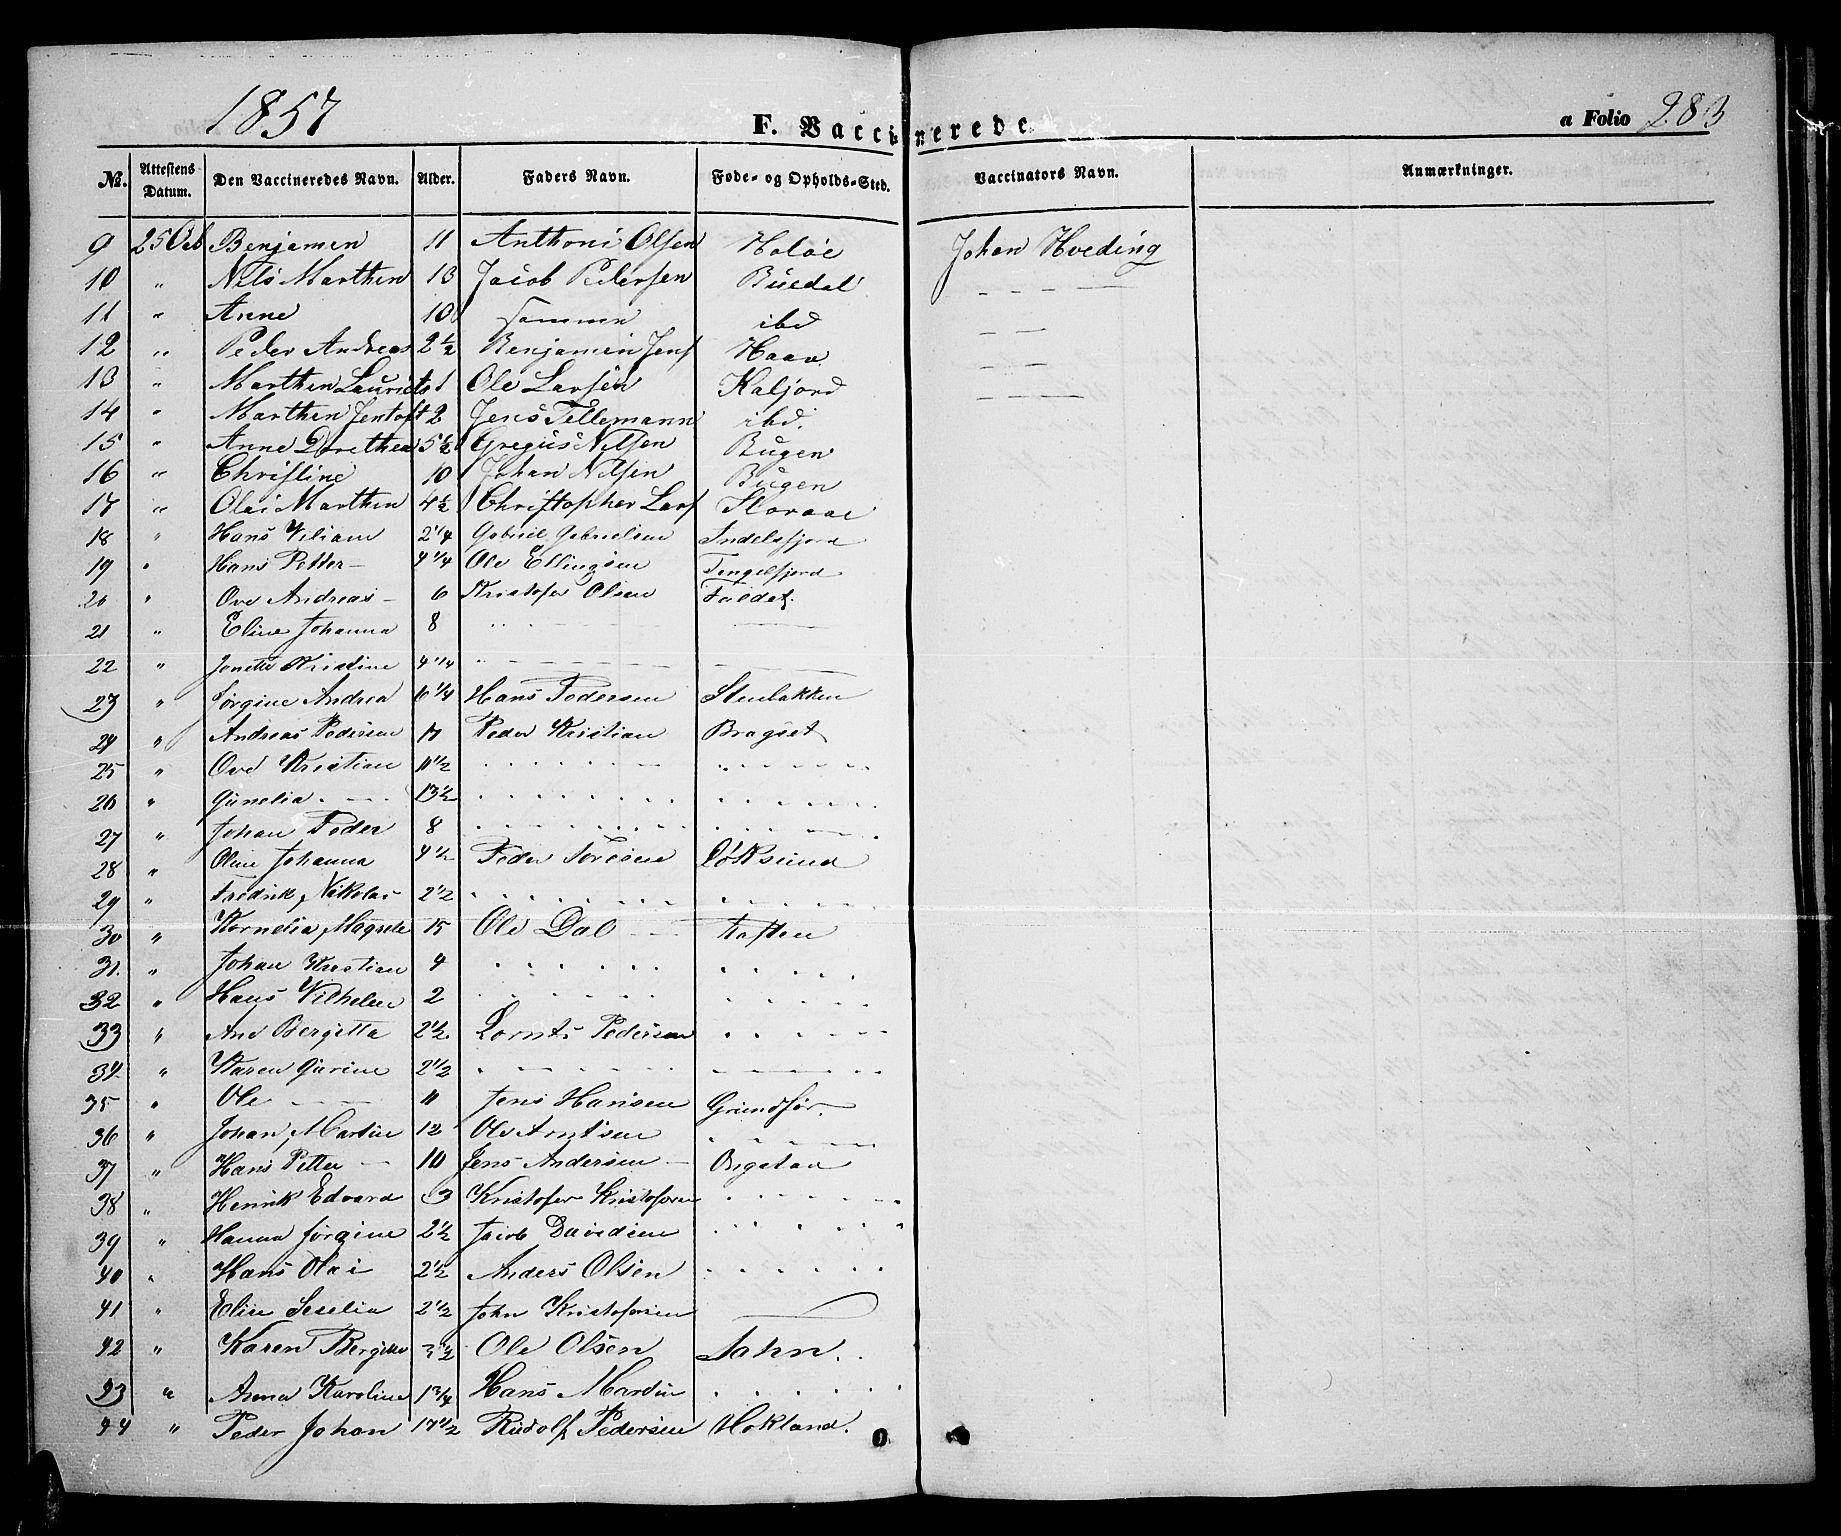 1857
F. Vaccinerede
a Folio 283
No. Attestens Datum. Den Vaccineredes Navn. Alder. Faders Navn. Føde- og Opholds-Sted. Vaccinators Navn. Anmærkninger.
9 25 Octb Benjamen 11 Anthoni Olsen Holøe Johan Hveding
10 " Nils Marthen 13 Jacob Pedersen Buedal — — — —
11 " Anne 10 Sammen ibd — —
12 " Peder Andreas 2½ Benjamin Jens Haav — — —
13 " Marthen Laurits 1 Ole Larsen Kaljord — — —
14 " Marthen Jentoft 2 Jens Tellemann ibd. — — — —
15 " Anne Dorethea 5½ Gregus Nilsen Bugen
16 " Christine 10 Johan Nilsen Bugen
17 " Olai Marthen 4½ Christopher Lars
18 " Hans Viliam 2 1/4 Gabriel Gabrielsen Indelsfjord
19 " Hans Petter - 4 1/4 Ole Ellingsen Tengelfjord
20 " Ove Andreas - 6 Kristofer Olsen Faldet.
21 " Eline Johanna 8 " - - - -
22 " Jonette Kristine 4 1/4 " - - - -
23 " Jørgine Andrea 6 1/4 Hans Pedersen Stenbakken
24 " Andreas Pedersen 17 Peder Kristian Bragset
25 " Ove Kristian 11 1/2 . . . . . . . . . .
26 " Gunelia . - - 13 ½ . . . . . . . . . .
27 " Johan Peder 8 . . . . . . . . . .
28 " Oline Johanna 4 1/2 Peder Loksund
29 " Fredrik Nikolai 2 1/2 . . . . . . . . . .
30 " Kornelia 15 Ole Dal - - Toften
31. " Johan Kristian 4 . . . . . . . . . .
32 " Hans Vilhelm 2 . . . . . . . . . .
33 " Ane Bergitta 2 1/2 Lornts Pedersen . . . . .
34 " Karen Gurine 2 1/2 - - - - - -
35 " Ole - - - 11 Jens Hansen Grundfør.
36 " Johan Martin 12 Ole Arntsen . . . . .
37 " Hans Petter - 10 Jens Andersen -
38 " Henrik Edvard 3 Kristofer Kristofersen . . . . .
39 " Hanna Jørgine 2 ½ Jacob Davidsen . . . . "
40 " Hans Olai 2 1/2 Anders Olsen . . . . . .
41 " Elise Seselia 2 1/2 John Kristofersen —
42 " Karen Bergitte 3 1/2 Ole Olsen Sahn.
23 " Anna Karoline 1 3/4 Hans Martin . . . . . .
44 " Peder Johan 17 1/2 Rudolf Pedersen Hokland.